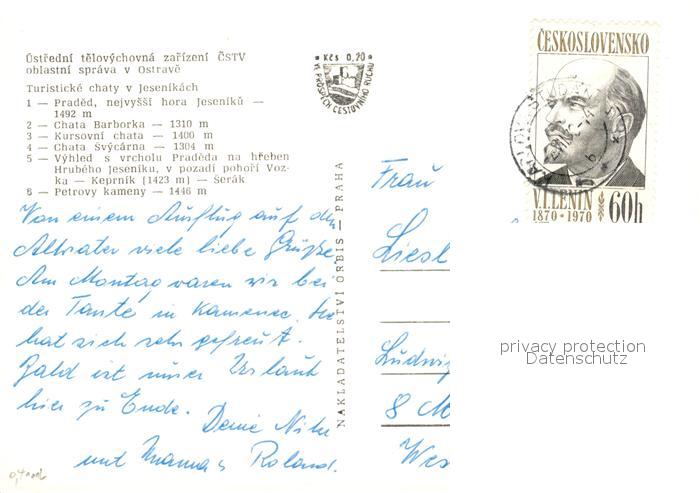 Ústřední tělovýchovná zařízení ČSTV
oblastní správa v Ostravě
Turistické chaty v Jeseníkách
1 — Praděd, nejvyšší hora Jeseníků —
1492 m
2 — Chata Barborka — 1310 m
3 — Kursovní chata — 1400 m
4 — Chata Švýcárna — 1304 m
5 — Výhled s vrcholu Praděda na hřeben
Hrubého Jeseníku, v pozadí pohoří Voz-
ka — Keprník (1423 m) — Šerák
6 — Petrovy kameny — 1446 m
Von einem Ausflug auf den
Altvater viele liebe Grüße.
Am Montag waren wir bei
der Tante in Kamenec. Sie
hat sich sehr gefreut.
Bald ist unser Urlaub
hier zu Ende.
Deine
und Mamma & Roland.
Kčs 0,20
VE PROSPĚCH CESTOVNÍHO RUCHU
NAKLADATELSTVÍ ORBIS — PRAHA
ČESKOSLOVENSKO
V.I. LENIN
1870 • 1970
60h
Frau
Liesl
Ludwig
8 M
Wes
privacy protection
Datenschutz